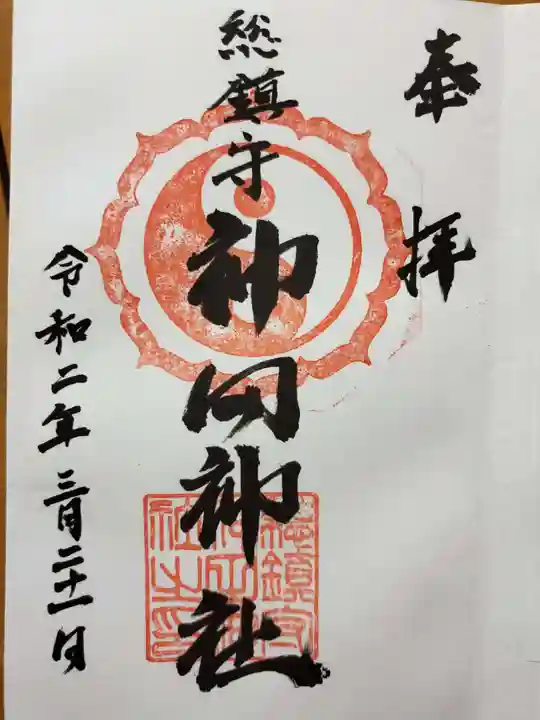 奉拝
総鎮守 神田神社
令和二年三月二十一日